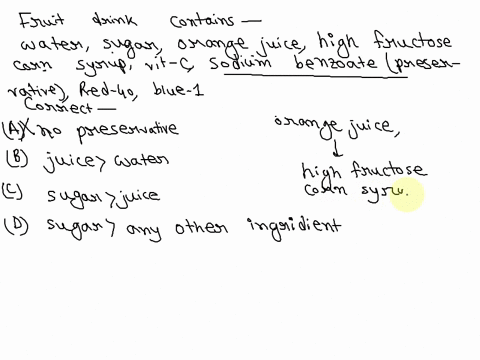 Fruit drink contains —
water, sugar, orange juice, high fructose
corn syrup, vit-C, sodium benzoate (preser-
rvative), Red-40, blue-1
Correct —
(A) no preservative
(B) juice > water
(C) sugar > juice
(D) sugar > any other ingridient
orange juice,
↓
high fructose
corn syru.